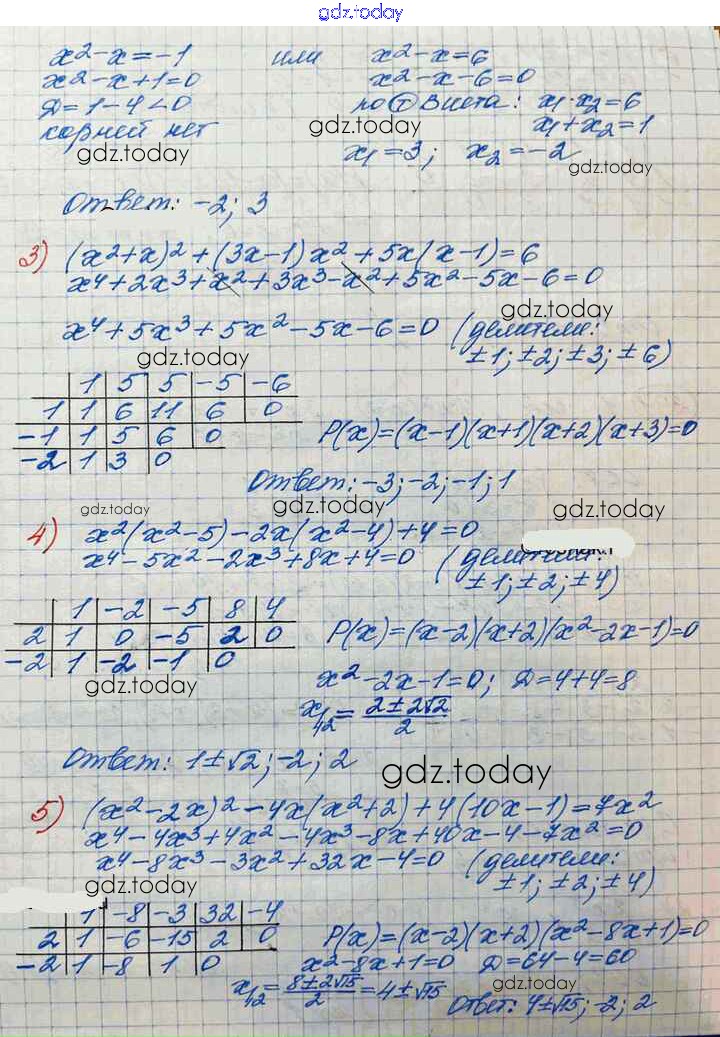 gdz.today
x²-x=-1 или x²-x=6
x²-x+1=0 x²-x-6=0
D=1-4<0 по Т Виета: x₁·x₂=6
корней нет x₁+x₂=1
gdz.today gdz.today
x₁=3; x₂=-2
gdz.today
Ответ: -2; 3
3) (x²+x)²+(3x-1)x²+5x(x-1)=6
x⁴+2x³+x²+3x³-x²+5x²-5x-6=0
gdz.today
x⁴+5x³+5x²-5x-6=0 (делители:
±1; ±2; ±3; ±6)
gdz.today
1 5 5 -5 -6
1 1 6 11 6 0
-1 1 5 6 0
-2 1 3 0
P(x)=(x-1)(x+1)(x+2)(x+3)=0
Ответ: -3; -2; -1; 1
gdz.today gdz.today gdz.today
4) x²(x²-5)-2x(x²-4)+4=0
x⁴-5x²-2x³+8x+4=0 (делители:
±1; ±2; ±4)
1 -2 -5 8 4
2 1 0 -5 2 0
-2 1 -2 -1 0
P(x)=(x-2)(x+2)(x²-2x-1)=0
gdz.today
x²-2x-1=0; D=4+4=8
x₁,₂=(2±2√2)/2
Ответ: 1±√2; -2; 2
gdz.today
5) (x²-2x)²-4x(x²+2)+4(10x-1)=7x²
x⁴-4x³+4x²-4x³-8x+40x-4-7x²=0
x⁴-8x³-3x²+32x-4=0 (делители:
±1; ±2; ±4)
gdz.today gdz.today
1 -8 -3 32 -4
2 1 -6 -15 2 0
-2 1 -8 1 0
P(x)=(x-2)(x+2)(x²-8x+1)=0
x²-8x+1=0 D=64-4=60
x₁,₂=(8±2√15)/2=4±√15
gdz.today
Ответ: 4±√15; -2; 2